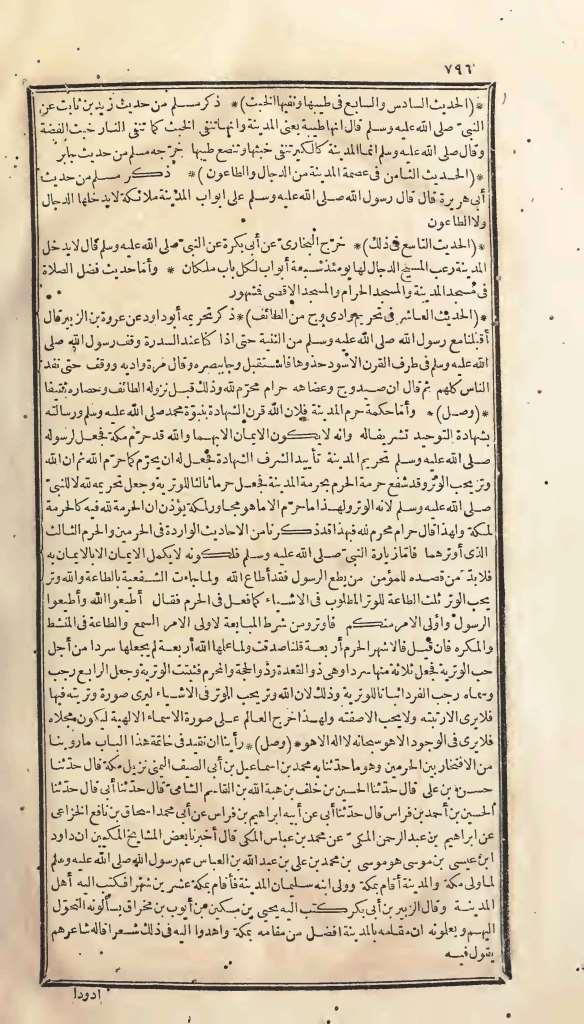 ٧٩٦
* (الحديث السادس والسابع فى طيبها ونفيها الخبث) * ذكر مسلم من حديث زيد بن ثابت عن
النبىّ صلى الله عليه وسلم قال انها طيبة يعنى المدينة وانها تنفى الخبث كما تنفى النار خبث الفضة
وقال صلى الله عليه وسلم انما المدينة كالكير تنفى خبثها وتنصع طيبها خرّجه مسلم من حديث جابر
* (الحديث الثامن فى عصمة المدينة من الدجال والطاعون) * ذكر مسلم من حديث
أبى هريرة قال قال رسول الله صلى الله عليه وسلم على ابواب المدينة ملائكة لا يدخلها الدجال
ولا الطاعون
* (الحديث التاسع فى ذلك) * خرّج البخارى عن أبى بكرة عن النبىّ صلى الله عليه وسلم قال لا يدخل
المدينة رعب المسيح الدجال لها يومئذ سبعة أبواب لكل باب ملكان * وأما حديث فضل الصلاة
فى مسجد المدينة والمسجد الحرام والمسجد الاقصى فمشهور
* (الحديث العاشر فى تحريم وادى وج من الطائف) * ذكر تحريمه أبو داود عن عروة بن الزبير قال
أقبلنا مع رسول الله صلى الله عليه وسلم من الثنية حتى اذا كنا عند السدرة وقف رسول الله صلى
الله عليه وسلم فى طرف القرن الأسود حذوها فاستقبل وجا ببصره وقال مرة واديه ووقف حتى نفد
الناس كلهم ثم قال ان صيد وج وعضاهه حرام محرّم لله وذلك قبل نزوله الطائف وحصاره ثقيفا
* (وصل) * وأما حكمة حرم المدينة فلان الله قرن الشهادة بنبوّة محمد صلى الله عليه وسلم ورسالته
بشهادة التوحيد تشريفا له وانه لا يكون الايمان الا بهما والله قد حرّم مكة فجعل لرسوله
صلى الله عليه وسلم تحريم المدينة تأييد الشرف الشهادة فجعل له ان يحرّم كما حرّم الله ثم ان الله
وتر يحب الوتر وقد شفع حرمة الحرم بحرمة المدينة فجعل حرما ثالثا للوترية وجعل تحريمه لله لا للنبىّ
صلى الله عليه وسلم لانه الوتر ولهذا ما حرّم الا ما هو مجاور لمكة يؤذن ان الحرمة لله فيه كالحرمة
لمكة ولهذا قال حرام محرم لله فهذا قد ذكرنا من الاحاديث الواردة فى الحرمين والحرم الثالث
الذى أوترهما فاما زيارة النبىّ صلى الله عليه وسلم فلكونه لا يكمل الايمان الا بالايمان به
فلا بدّ من قصده للمؤمن من يطع الرسول فقد أطاع الله ولما جاءت الشفعية بالطاعة والله وتر
يحب الوتر ثلث الطاعة للوتر المطلوب فى الاشياء كما فعل فى الحرم فقال أطيعوا الله وأطيعوا
الرسول وأولى الامر منكم فاوتر ومن شرط المبايعة لاولى الامر السمع والطاعة فى المنشط
والمكره فان قيل فالاشهر الحرم أربعة قلنا صدقت ولما علها الله أربعة لم يجعلها سردا من أجل
حب الوترية فجعل ثلاثة منها سردا وهى ذو القعدة وذو الحجة والمحرم فثبتت الوترية وجعل الرابع رجب
وسماه رجب الفرد اثباتا للوترية وذلك لان الله وتر يحب الوتر فى الاشياء ليرى صورة وتريته فيها
فلا يرى الا رتبته ولا يحب الا صفته ولهذا خرج العالم على صورة الاسماء الالهية ليكون مجلاه
فلا يرى فى الوجود الا هو سبحانه لا اله الا هو * (وصل) * رأينا ان نقيد فى خاتمة هذا الباب ما روينا
من الافتخار بين الحرمين وهو ما حدّثنا به محمد بن اسماعيل بن أبى الصيف اليمنى نزيل مكة قال حدّثنا
حسن بن على قال حدّثنا الحسين بن خلف بن هبة الله بن القاسم الشامى قال حدّثنا أبى قال حدّثنا
الحسين بن أحمد بن فراس قال حدّثنا أبى عن أبيه ابراهيم بن فراس عن أبى محمد اسحاق بن نافع الخزاعى
عن ابراهيم بن عبد الرحمن المكى عن محمد بن عباس المكى قال أخبرنا بعض المشايخ المكيين ان داود
ابن عيسى بن موسى هو موسى بن محمد بن على بن عبد الله بن العباس عم رسول الله صلى الله عليه وسلم
لما ولى مكة والمدينة أقام بمكة وولى ابنه سليمان المدينة فأقام بمكة عشرين شهرا فكتب اليه أهل
المدينة وقال الزبير بن أبى بكر كتب اليه يحيى بن مسكين بن أيوب بن مخراق يسألونه التحوّل
اليهم ويعلمونه ان مقامه بالمدينة افضل من مقامه بمكة واهدوا اليه فى ذلك شعرا قاله شاعرهم
يقول فيه
ادودا